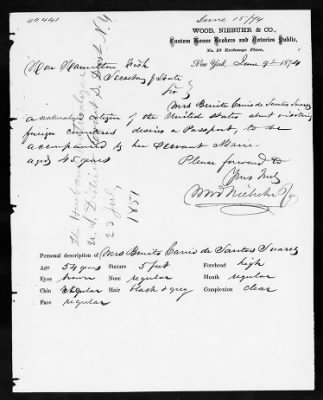 40441
June 15/74
WOOD, NIEBUHR & CO.,
Custom House Brokers and Notaries Public,
No. 18 Exchange Place,
New York June 9th 1874
Hon Hamilton Fish
Secretary of State
Sir
Mrs Benito Carris de Santos Suarez
a naturalized citizen of the United States about visiting
foreign countries desires a Passport, to be
accompanied by her Servant Marie
aged 45 years
Please forward to
Yours truly
Wood Niebuhr & Co
the Honbl
U. S. District Court S. Dist N Y
22 July
1851
Personal description of Mrs Benito Carris de Santos Suarez
Age 54 years Stature 5 feet Forehead high
Eyes brown Nose regular Mouth regular
Chin regular Hair black & grey Complexion clear
Face regular